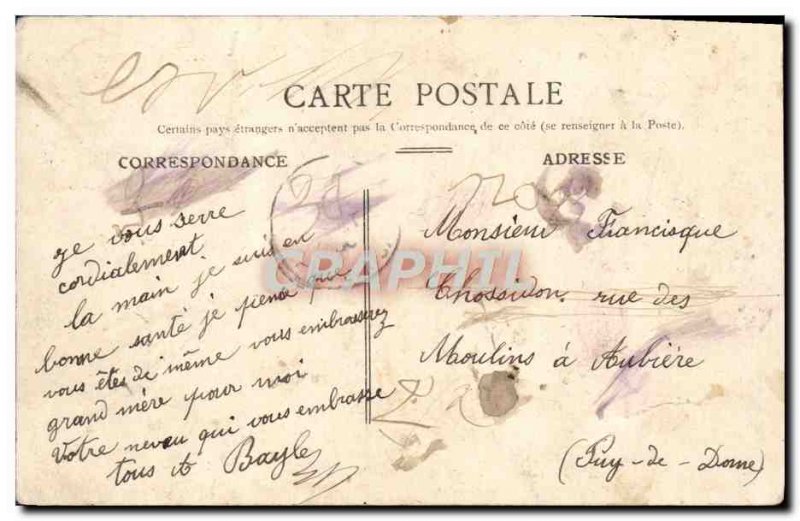 CARTE POSTALE
Certains pays étrangers n'acceptent pas la Correspondance de ce côté (se renseigner à la Poste).
CORRESPONDANCE
je vous serre
cordialement
la main je suis en
bonne santé je pience que
vous êtes de même vous embrasserez
grand mère pour moi
Votre neveu qui vous embrasse
tous Bayle
ADRESSE
Monsieur Francisque
Chossidon, rue des
Moulins à Aubière
(Puy-de-Dome)
CPARAPHIL